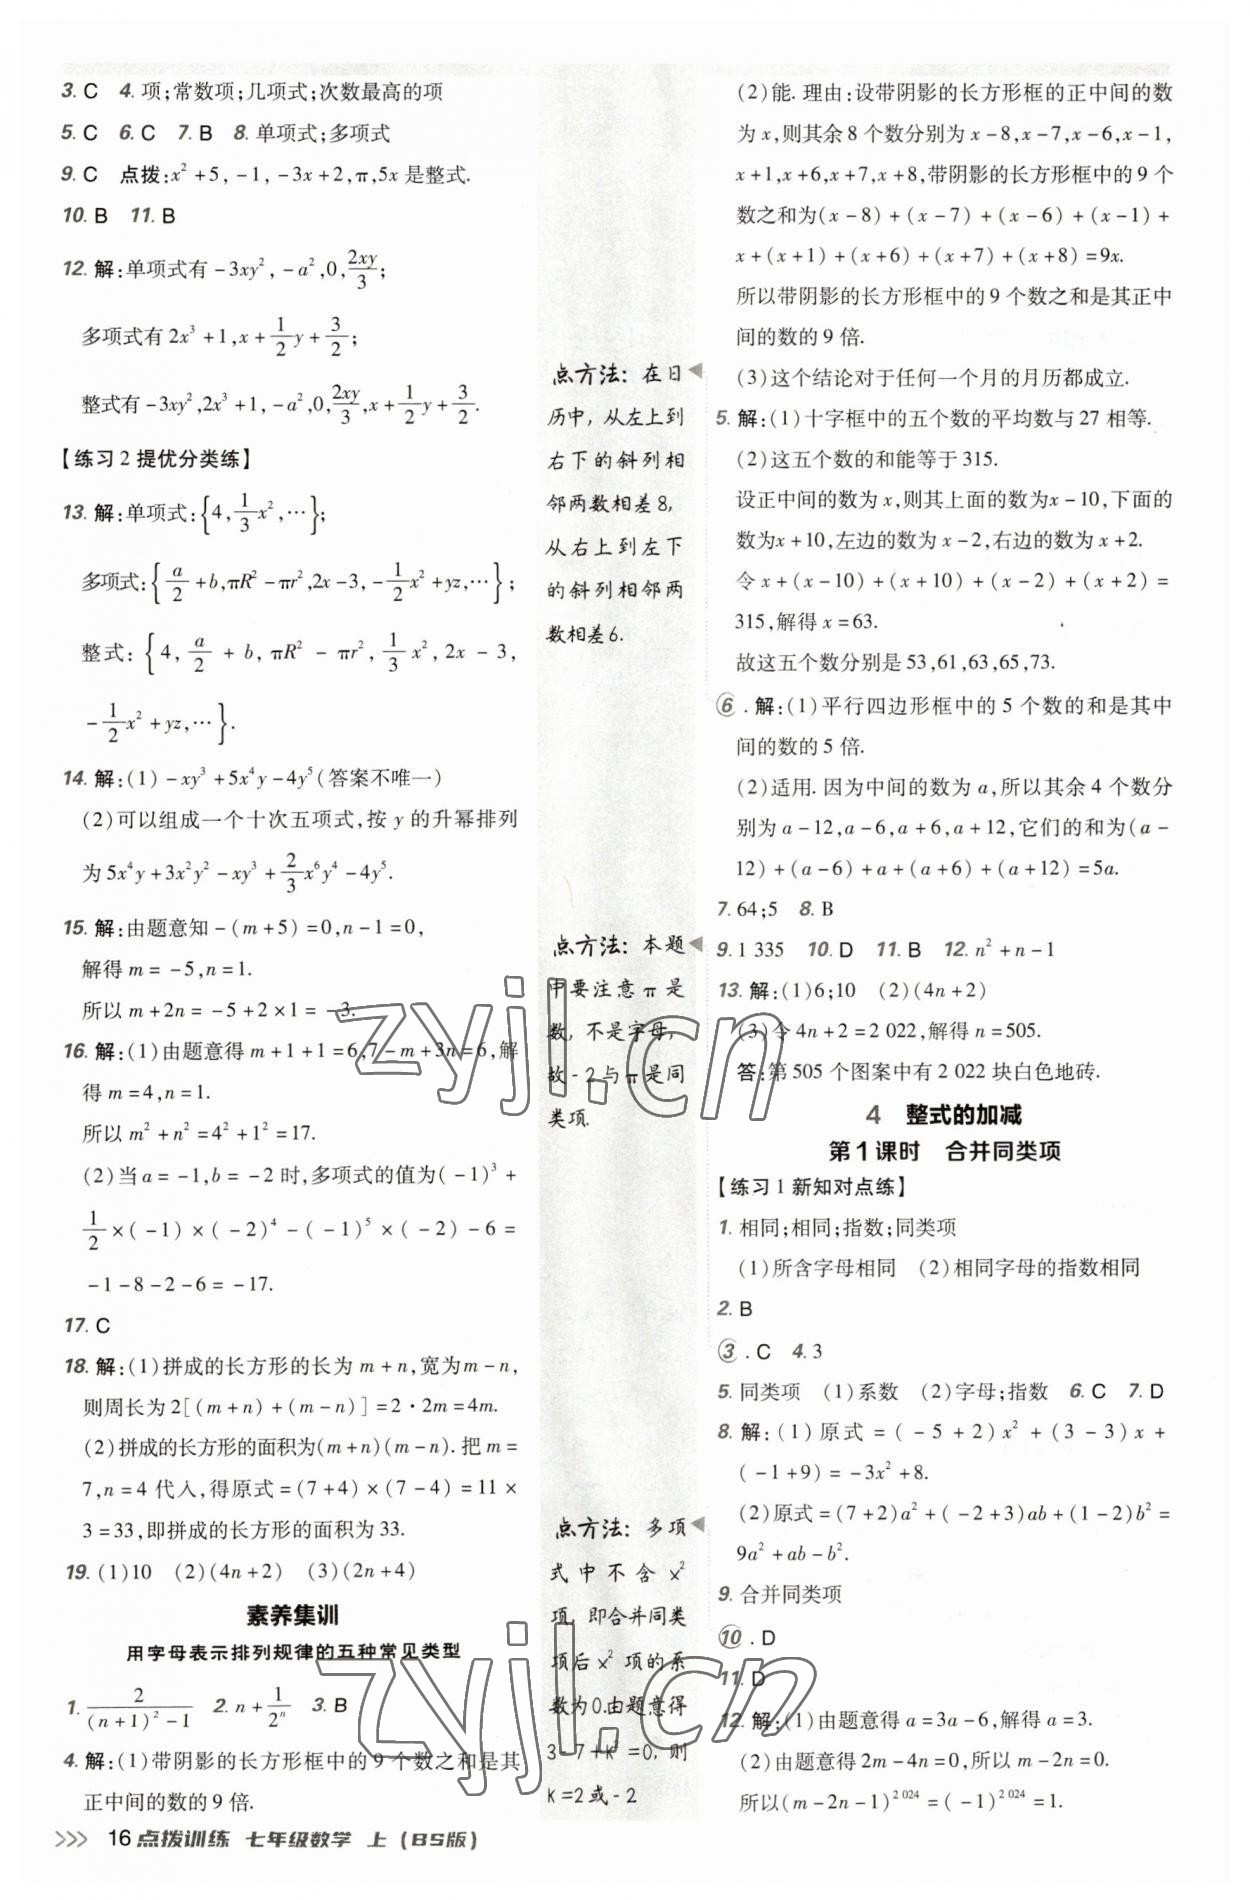 3. C 4. 项;常数项;几项式;次数最高的项
5. C 6. C 7. B 8. 单项式;多项式
9. C 点拨:x²+5,-1,-3x+2,π,5x是整式.
10. B 11. B
12. 解:单项式有-3xy²,-a²,0,2xy/3;
多项式有2x³+1,x+1/2y+3/2;
整式有-3xy²,2x³+1,-a²,0,2xy/3,x+1/2y+3/2.
【练习2提优分类练】
13. 解:单项式:{4,1/3x²,…};
多项式:{a/2+b,πR²-πr²,2x-3,-1/2x²+yz,…};
整式:{4,a/2+b,πR²-πr²,1/3x²,2x-3,
-1/2x²+yz,…}.
14. 解:(1)-xy³+5x⁴y-4y⁵(答案不唯一)
(2)可以组成一个十次五项式,按y的升幂排列
为5x⁴y+3x²y²-xy³+2/3x⁶y⁴-4y⁵.
15. 解:由题意知-(m+5)=0,n-1=0,
解得m=-5,n=1.
所以m+2n=-5+2×1=-3.
16. 解:(1)由题意得m+1+1=6,7-m+3n=6,解
得m=4,n=1.
所以m²+n²=4²+1²=17.
(2)当a=-1,b=-2时,多项式的值为(-1)³+
1/2×(-1)×(-2)⁴-(-1)⁵×(-2)-6=
-1-8-2-6=-17.
17. C
18. 解:(1)拼成的长方形的长为m+n,宽为m-n,
则周长为2[(m+n)+(m-n)]=2·2m=4m.
(2)拼成的长方形的面积为(m+n)(m-n).把m=
7,n=4代入,得原式=(7+4)×(7-4)=11×
3=33,即拼成的长方形的面积为33.
19. (1)10 (2)(4n+2) (3)(2n+4)
素养集训
用字母表示排列规律的五种常见类型
1. 2/((n+1)²-1) 2. n+1/2ⁿ 3. B
4. 解:(1)带阴影的长方形框中的9个数之和是其
正中间的数的9倍.
点方法:在日
历中,从左上到
右下的斜列相
邻两数相差8,
从右上到左下
的斜列相邻两
数相差6.
点方法:本题
中要注意π是
数,不是字母,
故-2与π是同
类项.
点方法:多项
式中不含x²
项,即合并同类
项后x²项的系
数为0.由题意得
3-7+k²=0,则
k=2或-2
(2)能.理由:设带阴影的长方形框的正中间的数
为x,则其余8个数分别为x-8,x-7,x-6,x-1,
x+1,x+6,x+7,x+8,带阴影的长方形框中的9个
数之和为(x-8)+(x-7)+(x-6)+(x-1)+
x+(x+1)+(x+6)+(x+7)+(x+8)=9x.
所以带阴影的长方形框中的9个数之和是其正中
间的数的9倍.
(3)这个结论对于任何一个月的月历都成立.
5. 解:(1)十字框中的五个数的平均数与27相等.
(2)这五个数的和能等于315.
设正中间的数为x,则其上面的数为x-10,下面的
数为x+10,左边的数为x-2,右边的数为x+2.
令x+(x-10)+(x+10)+(x-2)+(x+2)=
315,解得x=63.
故这五个数分别是53,61,63,65,73.
⑥. 解:(1)平行四边形框中的5个数的和是其中
间的数的5倍.
(2)适用.因为中间的数为a,所以其余4个数分
别为a-12,a-6,a+6,a+12,它们的和为(a-
12)+(a-6)+a+(a+6)+(a+12)=5a.
7. 64;5 8. B
9. 1 335 10. D 11. B 12. n²+n-1
13. 解:(1)6;10 (2)(4n+2)
(3)令4n+2=2 022,解得n=505.
答:第505个图案中有2 022块白色地砖.
4 整式的加减
第1课时 合并同类项
【练习1新知对点练】
1. 相同;相同;指数;同类项
(1)所含字母相同 (2)相同字母的指数相同
2. B
③. C 4. 3
5. 同类项 (1)系数 (2)字母;指数 6. C 7. D
8. 解:(1)原式=(-5+2)x²+(3-3)x+
(-1+9)=-3x²+8.
(2)原式=(7+2)a²+(-2+3)ab+(1-2)b²=
9a²+ab-b².
9. 合并同类项
⑩. D
11. D
12. 解:(1)由题意得a=3a-6,解得a=3.
(2)由题意得2m-4n=0,所以m-2n=0.
所以(m-2n-1)²⁰²⁴=(-1)²⁰²⁴=1.
16 点拨训练 七年级数学 上(BS版)
zyjl.cn
zyjl.cn